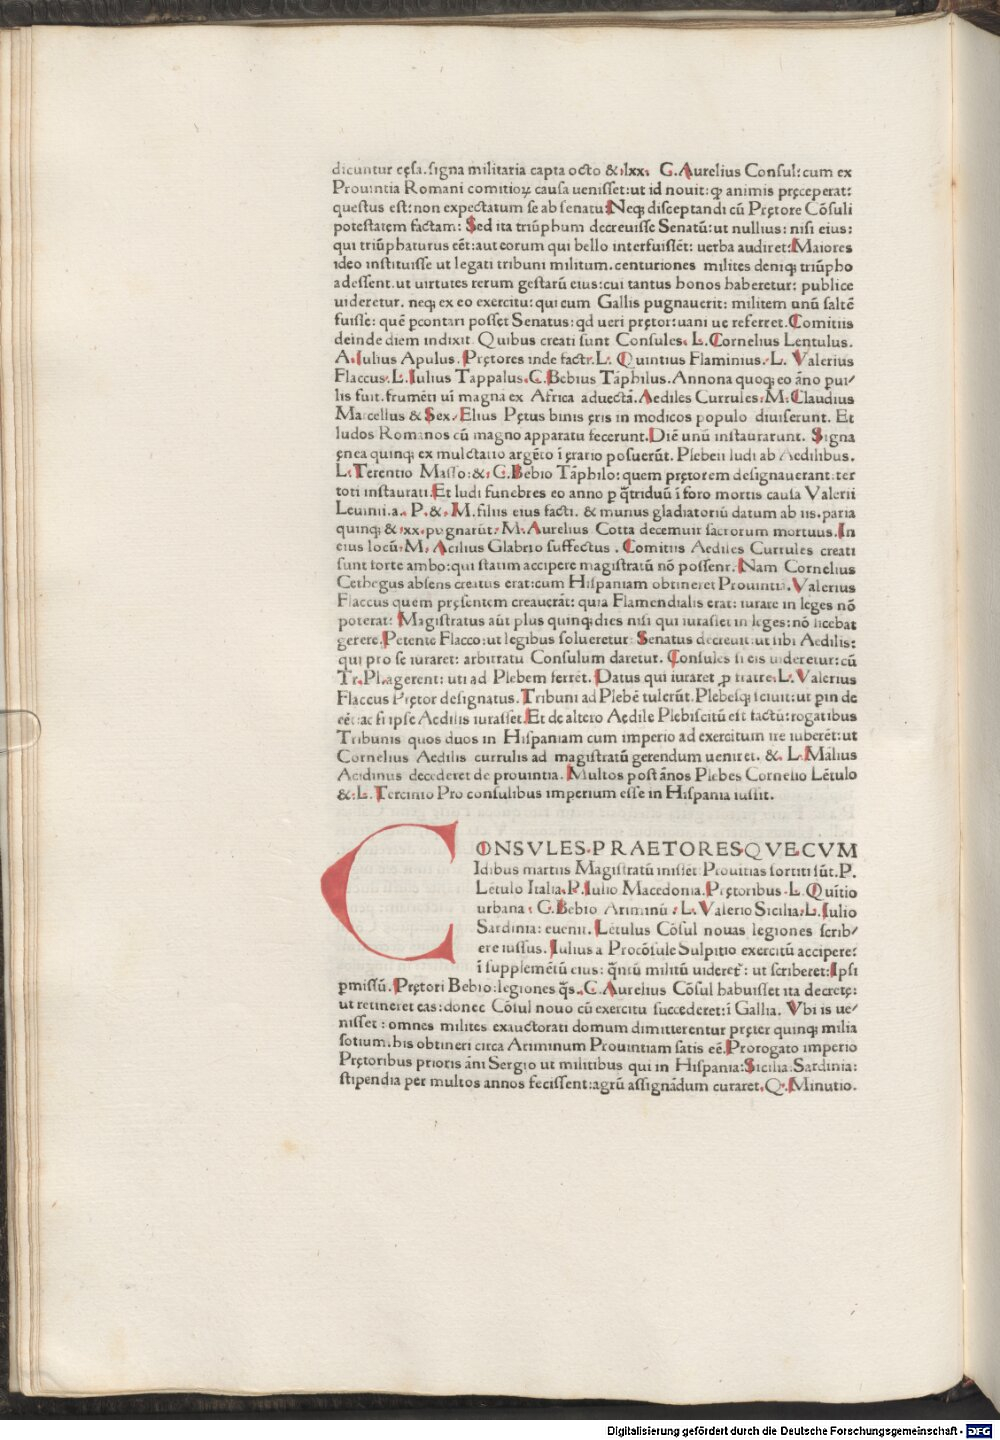 dicuntur cęsa. signa militaria capta octo & lxx. C. Aurelius Consul: cum ex
Prouintia Romani comitioꝝ causa uenisset: ut id nouit: ꝙ animis pręceperat:
questus est: non expectatum se ab senatu: Neq; disceptandi cū Prętore Cōsuli
potestatem factam: Sed ita triūphum decreuisse Senatū: ut nullius: nisi eius:
qui triūphaturus eēt: aut eorum qui bello interfuissēt: uerba audiret: Maiores
ideo instituisse ut legati tribuni militum. centuriones milites deniq; triūpho
adessent. ut uirtutes rerum gestarū eius: cui tantus honos haberetur: publice
uideretur. neq; ex eo exercitu: qui cum Gallis pugnauerit: militem unū saltē
fuisse: quē pcontari posset Senatus: qd ueri prętor: uani ue referret. Comitiis
deinde diem indixit Quibus creati sunt Consules. L. Cornelius Lentulus.
A. Iulius Apulus. Prętores inde facti. L. Quintius Flaminius. L. Valerius
Flaccus. L. Iulius Tappalus. C. Bebius Tāphilus. Annona quoq; eo āno pui/
lis fuit. frumēti uī magna ex Africa aduectā. Aediles Currules. M. Claudius
Marcellus & Sex. Elius Pętus binis ęris in modicos populo diuiserunt. Et
ludos Romanos cū magno apparatu fecerunt. Diē unū instaurarunt. Signa
ęnea quinq; ex mulctatio argēto ī ęrario posuerūt. Plebeii ludi ab Aedilibus.
L. Terentio Masso: & C. Bebio Tāphilo: quem prętorem designauerant: ter
toti instaurati. Et ludi funebres eo anno p q̄triduū ī foro mortis causa Valerii
Leuinii. a. P. & M. filiis eius facti. & munus gladiatoriū datum ab iis. paria
quinq; & xx. pugnarūt. M. Aurelius Cotta decemuir sacrorum mortuus. In
eius locū. M. Acilius Glabrio suffectus. Comitiis Aediles Currules creati
sunt forte ambo: qui statim accipere magistratū nō possent. Nam Cornelius
Cethegus absens creatus erat: cum Hispaniam obtineret Prouintia. Valerius
Flaccus quem pręsentem creauerāt: quia Flamendialis erat: iurare in leges nō
poterat: Magistratus aūt plus quinq; dies nisi qui iurasset in leges: nō licebat
gerere. Petente Flacco: ut legibus solueretur: Senatus decreuit: ut sibi Aedilis:
qui pro se iuraret: arbitratu Consulum daretur. Consules si eis uideretur: cū
Tr. Pl. agerent: uti ad Plebem ferrēt. Datus qui iuraret ꝓ fratre. L. Valerius
Flaccus Prętor designatus. Tribuni ad Plebē tulerūt. Plebesq; sciuit: ut pin de
eēt: ac si ipse Aedilis iurasset. Et de altero Aedile Plebiscitū est factū: rogatibus
Tribunis quos duos in Hispaniam cum imperio ad exercitum ire iuberēt: ut
Cornelius Aedilis currulis ad magistratū gerendum ueniret. & L. Mālius
Acidinus decederet de prouintia. Multos post ānos Plebes Cornelio Lētulo
& L. Tercinio Pro consulibus imperium esse in Hispania iussit.
CONSVLES PRAETORESQVE CVM
Idibus martiis Magistratū inissēt Prouitias sortiti sūt. P.
Lētulo Italia. P. Iulio Macedonia. Prętoribus. L. Quītio
urbana. C. Bebio Ariminū. L. Valerio Sicilia. L. Iulio
Sardinia: euenit. Lētulus Cōsul nouas legiones scrib/
ere iussus. Iulius a Procōsule Sulpitio exercitū accipere:
ī supplemētū eius: q̄ntū militū uideret: ut scriberet: Ipsi
pmissū. Prętori Bebio: legiones q̄s. C. Aurelius Cōsul habuisset ita decretę:
ut retineret eas: donec Cōsul nouo cū exercitu succederet: ī Gallia. Vbi is ue/
nisset: omnes milites exauctorati domum dimitterentur pręter quinq; milia
sotium. his obtineri circa Ariminum Prouintiam satis eē. Prorogato imperio
Prętoribus prioris āni Sergio ut militibus qui in Hispania: Sicilia: Sardinia:
stipendia per multos annos fecissent: agrū assignādum curaret. Q. Minutio.
Digitalisierung gefördert durch die Deutsche Forschungsgemeinschaft - DFG